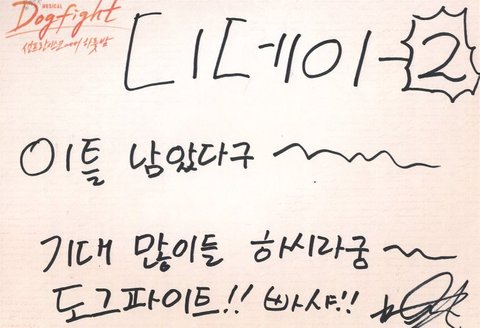 MUSICAL
Dogfight
샌프란시스코에서의 하룻밤
디데이-2
이틀 남았다구
기대 많이들 하시라궁
도그파이트!! 빠샤!!